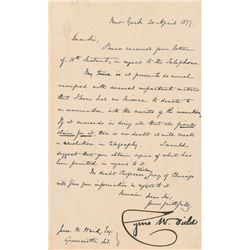 New York 20 April 187
Dear Sir,
I have received your letter
of 18th Instant, in regard to the Telephone.
My time is at present so much
occupied with several important matters
that I have no leisure to devote to
an examination into the merits of the
If it succeeds in doing all that its friends
claim for it, there is no doubt it will create
a revolution in telegraphy. I would
suggest that you obtain copies of what has
been printed in regard to it.
No doubt Professor Gray of Chicago
will give you information in regard to it.
I remain, dear Sir,
Yours faithfully,
Cyrus W. Field
James H. Ward, Esq.
Greencastle